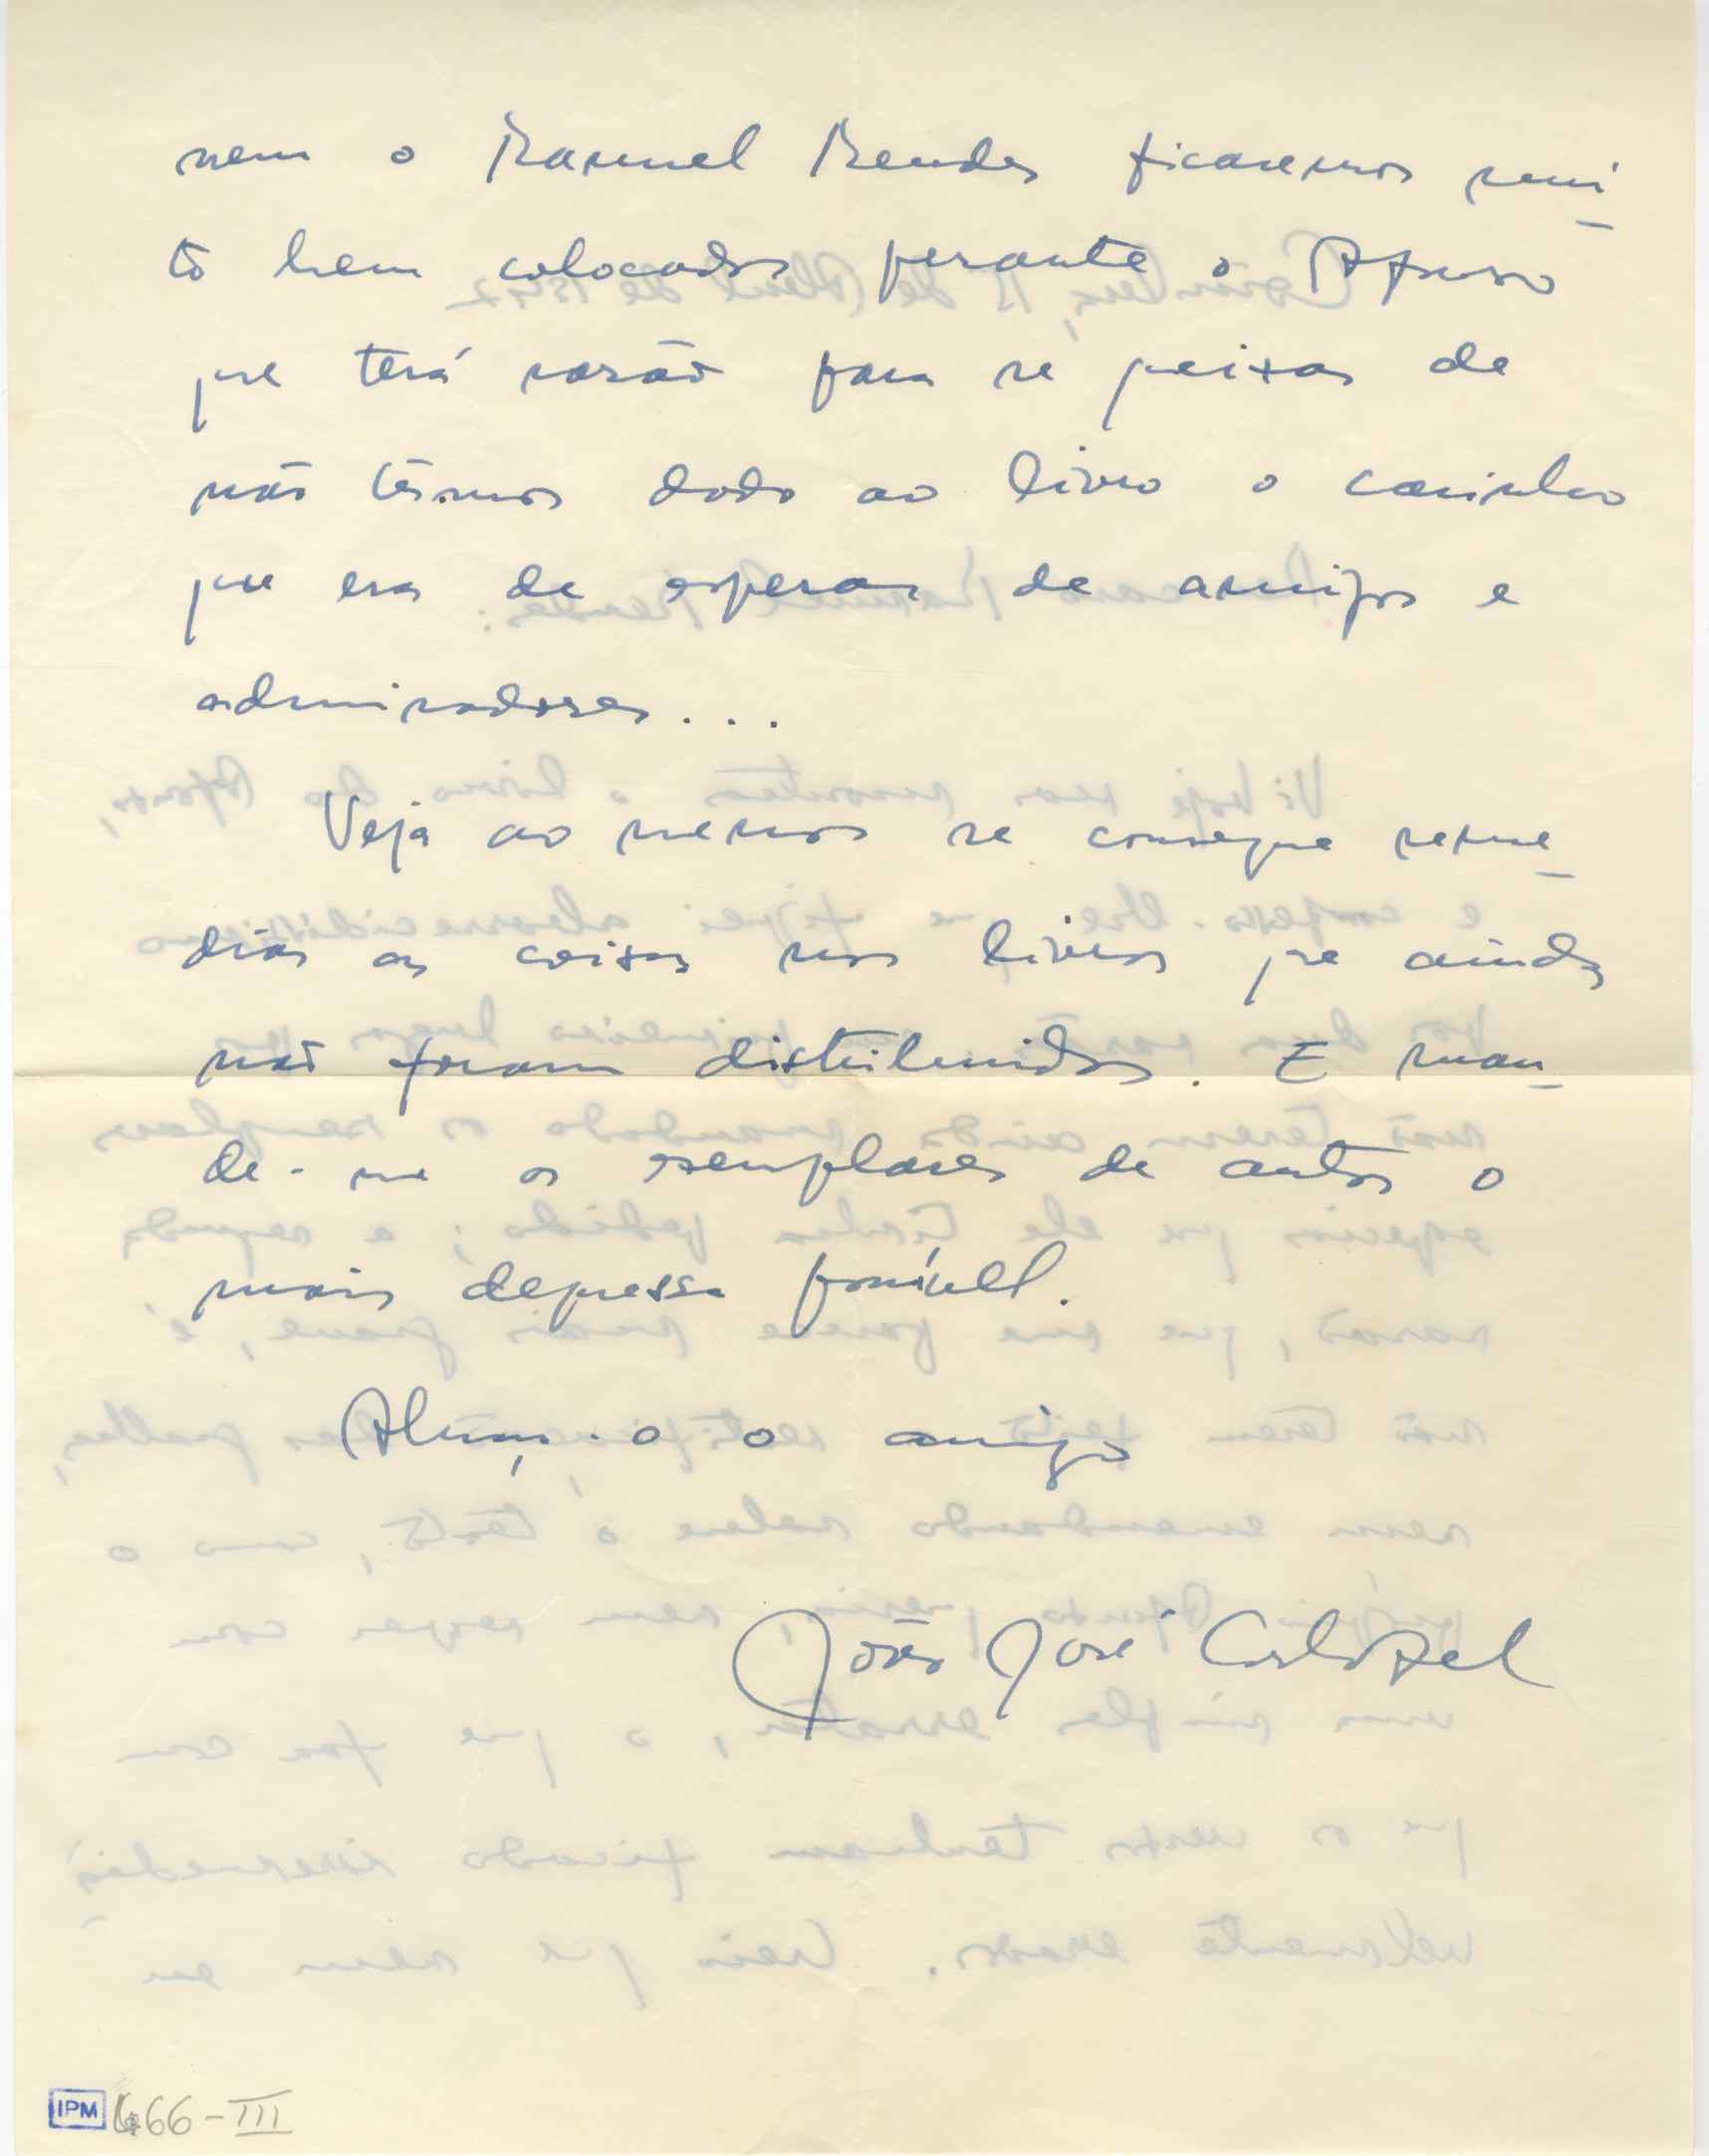 nem o Manuel Mendes ficaremos mui-
to bem colocados perante o Afonso
que terá razão para se queixar de
não têrmos dado ao livro o carinho
que era de esperar de amigos e
admiradores...
Veja ao menos se consegue reme-
diar as coisas nos livros que ainda
não foram distribuidos. E man-
de-me os exemplares de autor o
mais depressa possível.
Abraça-o o amigo
João José Cochofel
IPM 466-III